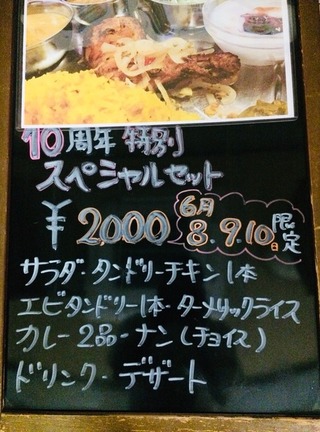 10周年 特別
スペシャルセット
¥2,000 6月8.9.10日限定
サラダ・タンドリーチキン1本
エビタンドリー1本・ターメリックライス
カレー2品・ナン(チョイス)
ドリンク・デザート